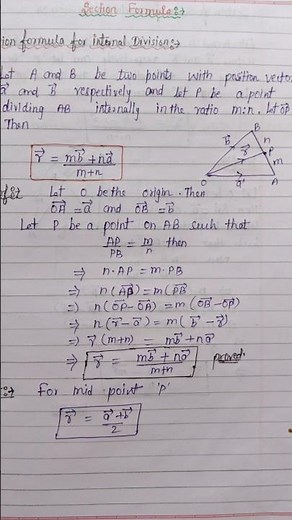 Section Formula:→
ion formula for internal Division:→
Let A and B be two points with position vector
a⃗ and b⃗ respectively and let P be a point
dividing AB internally in the ratio m:n. Let OP
Then
B
n
P
m
A
O
b⃗
r⃗
a⃗
r⃗ = (mb⃗ + na⃗)/(m+n)
of:→ Let O be the origin. Then
OA⃗ = a⃗ and OB⃗ = b⃗
Let P be a point on AB such that
AP/PB = m/n then
⇒ n·AP = m·PB
⇒ n(AP⃗) = m(PB⃗
⇒ n(OP⃗ - OA⃗) = m(OB⃗ - OP⃗)
⇒ n(r⃗ - a⃗) = m(b⃗ - r⃗)
⇒ r⃗(m+n) = mb⃗ + na⃗
⇒ r⃗ = (mb⃗ + na⃗)/(m+n) proved.
:→ For mid point 'P'
r⃗ = (a⃗ + b⃗)/2